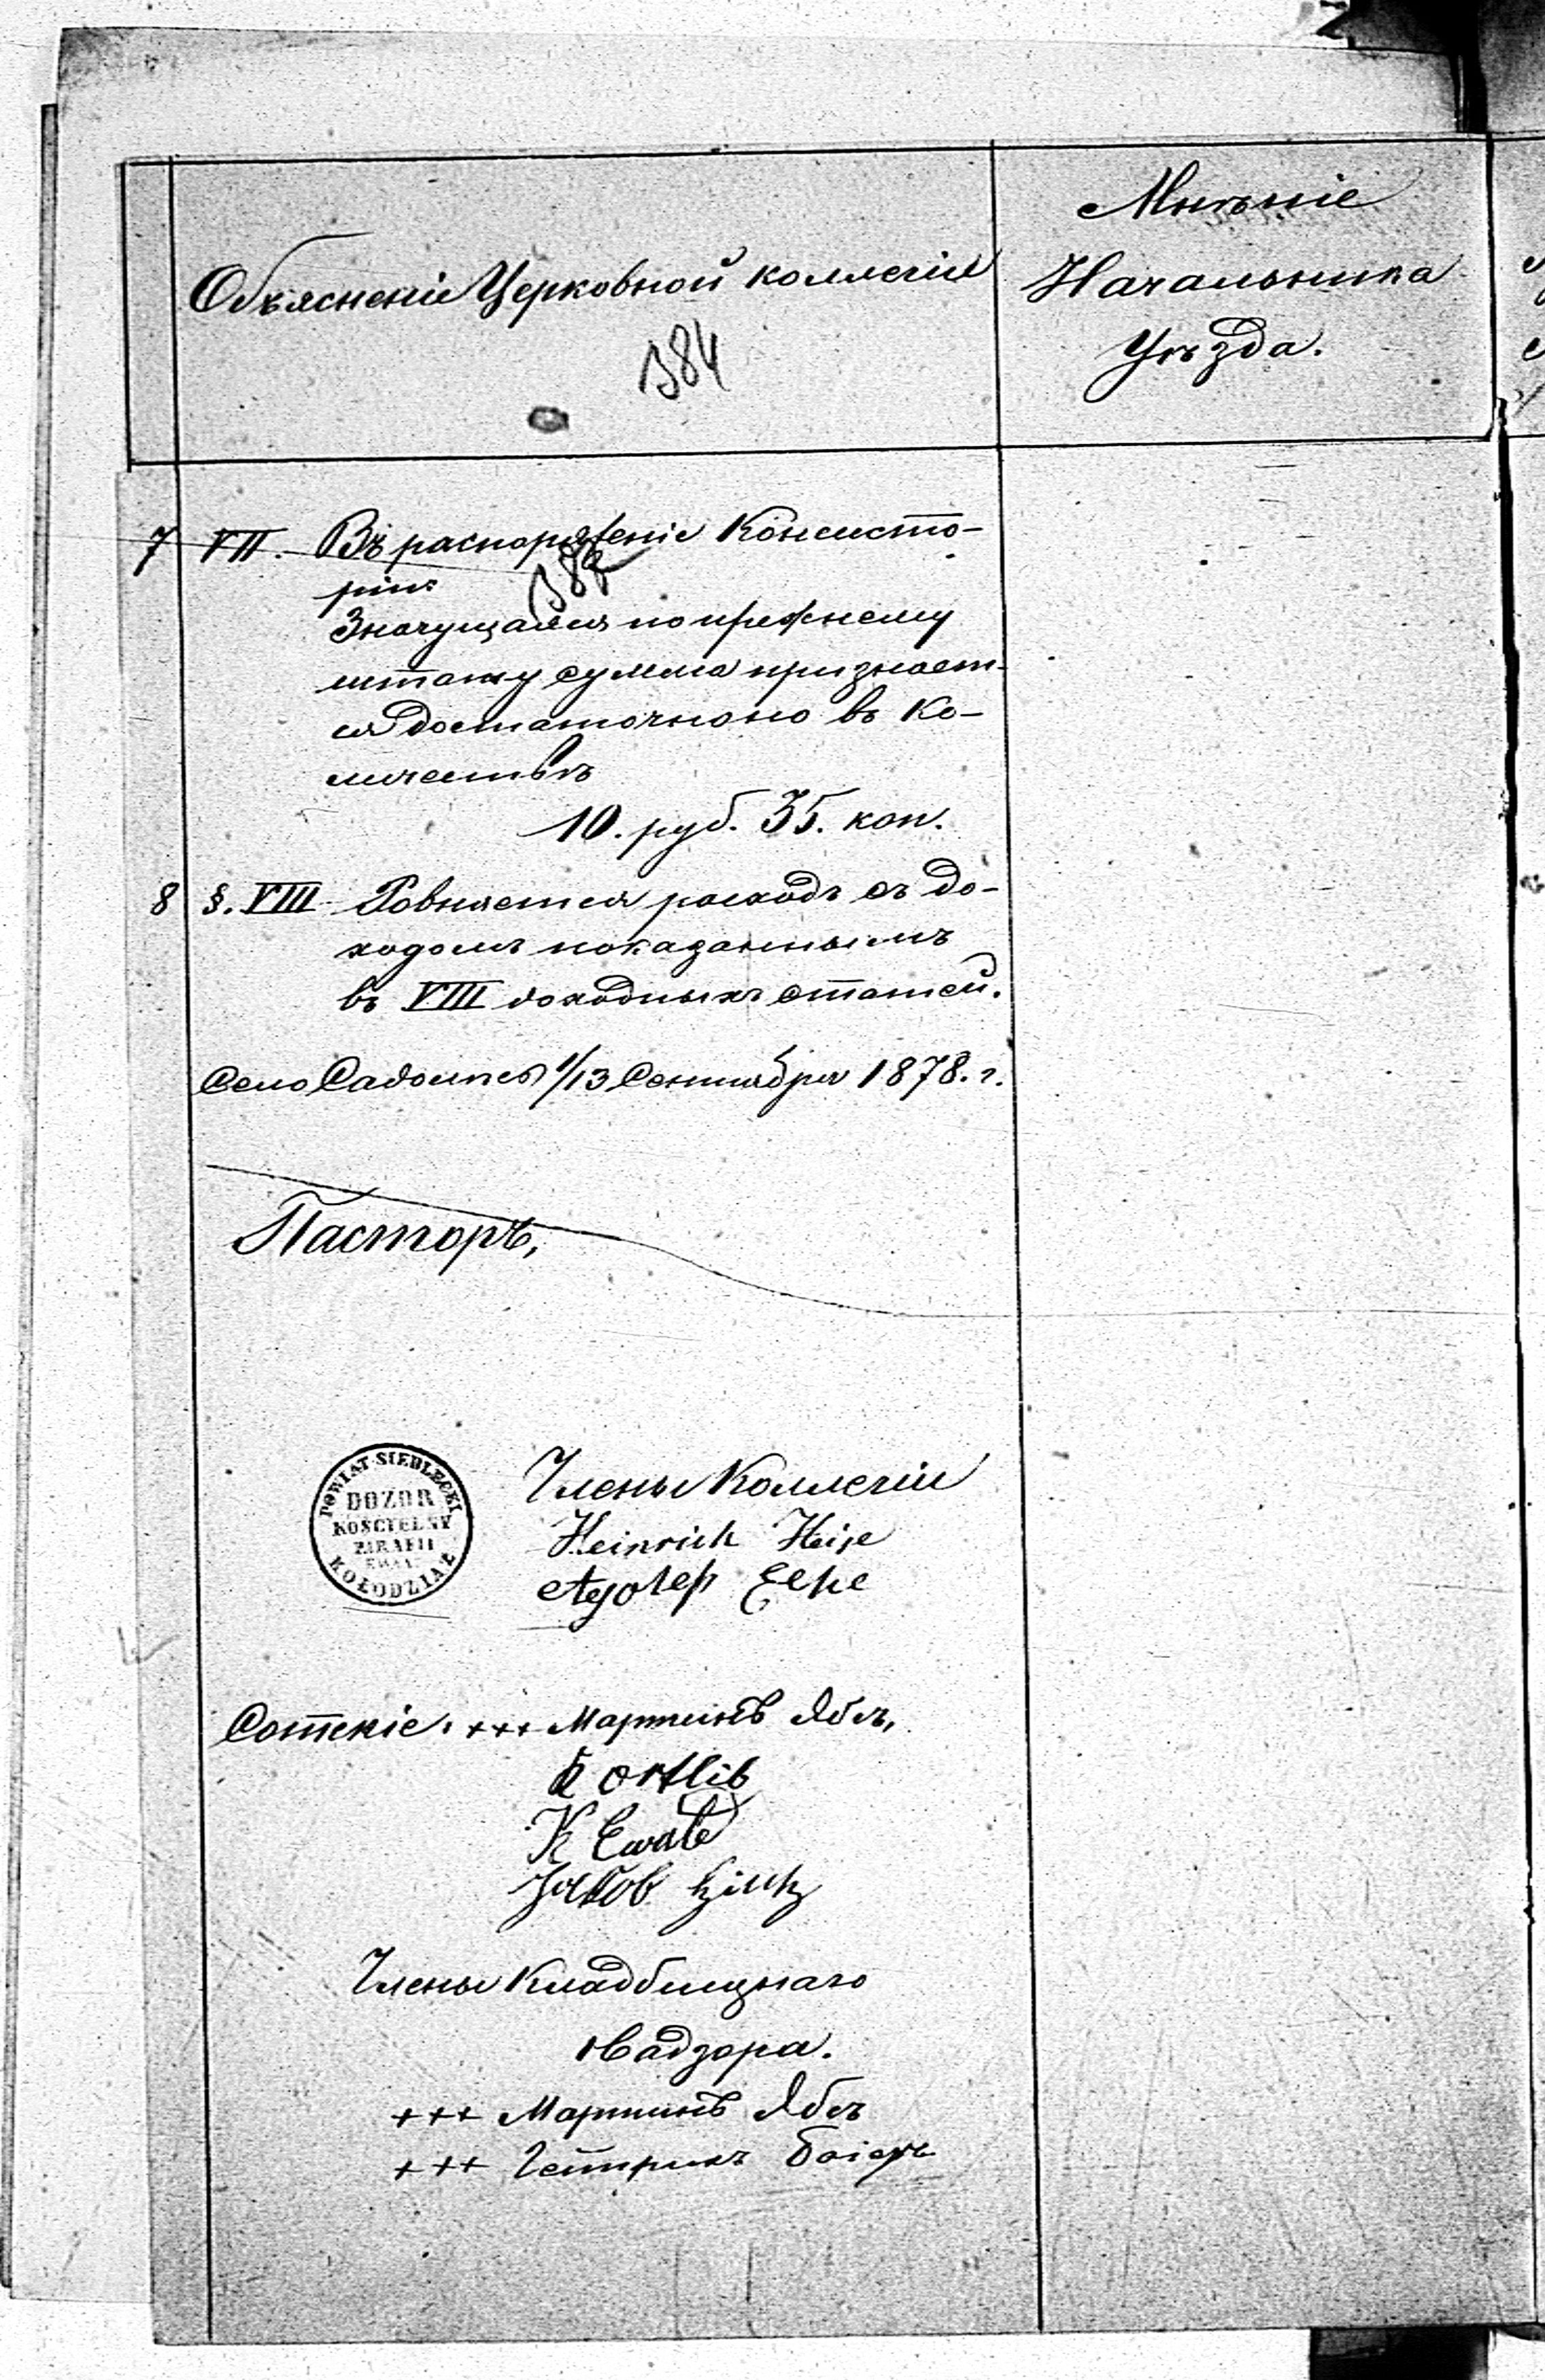 Мнѣніе
Объясненіе Церковной коллегіи
Начальника
Уѣзда.
384
7 VII. Въ распоряженіе Консисто-
ріи
Значущаяся по прежнему
штату сумма признает-
ся достаточною въ ко-
личествѣ
10. руб. 35. коп.
8 §. VIII Ровняется расходъ съ до-
ходомъ показаннымъ
въ VIII доходныхъ статей.
Село Садолесъ 1/13 Сентября 1878. г.
Пасторъ,
POWIAT SIEDLECKI
DOZOR
KOŚCIELNY
PARAFII
KOŁODZIĄŻ
Члены Коллегіи
Heinrich Heise
Сотскіе. +++ Мартинъ Ябсъ,
Ortlib
K Ewald
Jakob
Члены Кладбищнаго
Надзора.
+++ Мартинъ Ябсъ
+++